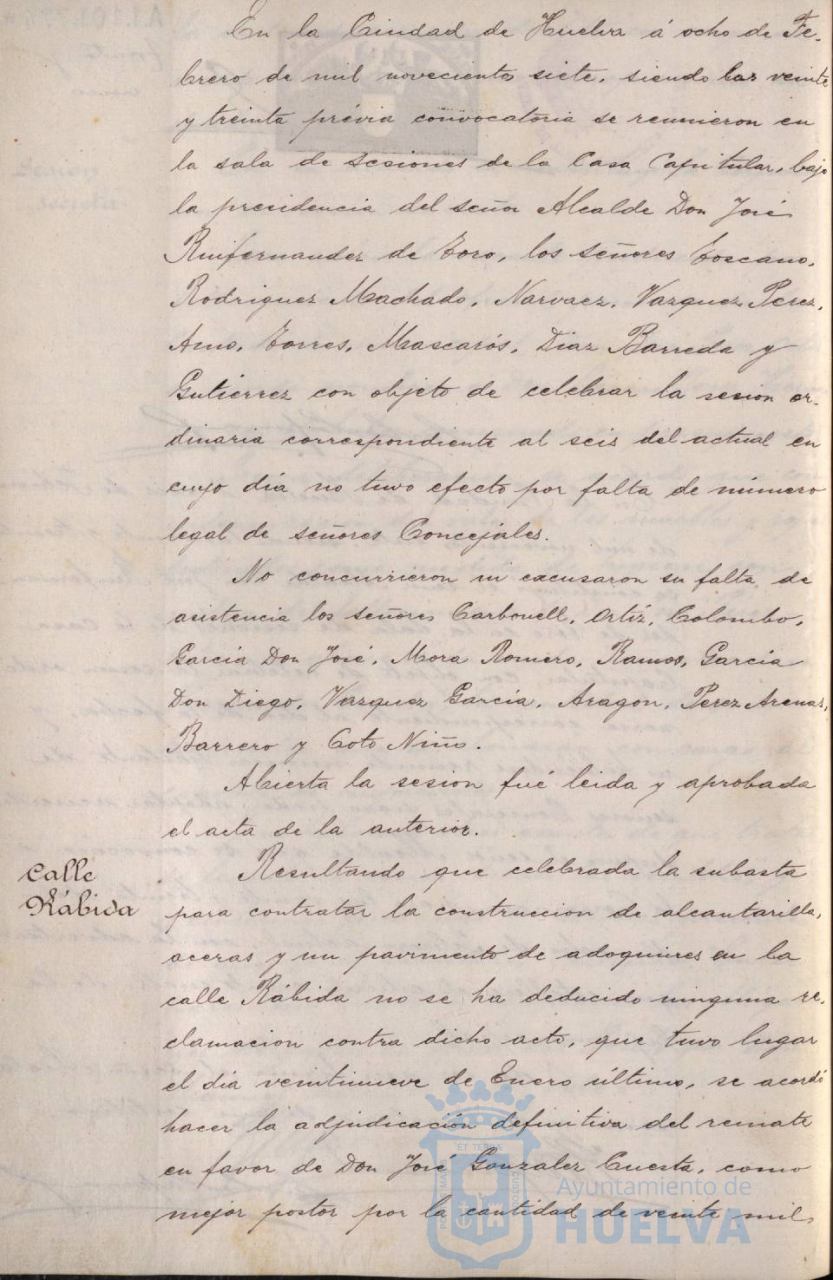 En la Ciudad de Huelva á ocho de Fe-
brero de mil novecientos siete, siendo las veinte
y treinta prévia convocatoria se reunieron en
la sala de sesiones de la Casa Capitular, bajo
la presidencia del señor Alcalde Don José
Ruifernandez de Toro, los señores Toscano,
Rodriguez Machado, Narvaez, Vazquez Perez,
Amo, Torres, Mascarós, Diaz Barreda y
Gutiérrez con objeto de celebrar la sesion or-
dinaria correspondiente al seis del actual en
cuyo día no tuvo efecto por falta de número
legal de señores Concejales.
No concurrieron ni excusaron su falta de
asistencia los señores Carbonell, Ortiz, Colombo,
García Don José, Mora Romero, Ramos, García
Don Diego, Vazquez García, Aragon, Perez Arenas,
Barrero y Coto Niño.
Abierta la sesion fué leida y aprobada
el acta de la anterior.
Calle
Rábida
Resultando que celebrada la subasta
para contratar la construccion de alcantarilla,
aceras y un pavimento de adoquines en la
calle Rábida no se ha deducido ninguna re-
clamacion contra dicho acto, que tuvo lugar
el día veintinueve de Enero último, se acordó
hacer la adjudicación definitiva del remate
en favor de Don José Gonzalez Cuesta, como
mejor postor por la cantidad de veinte mil
Ayuntamiento de
HUELVA